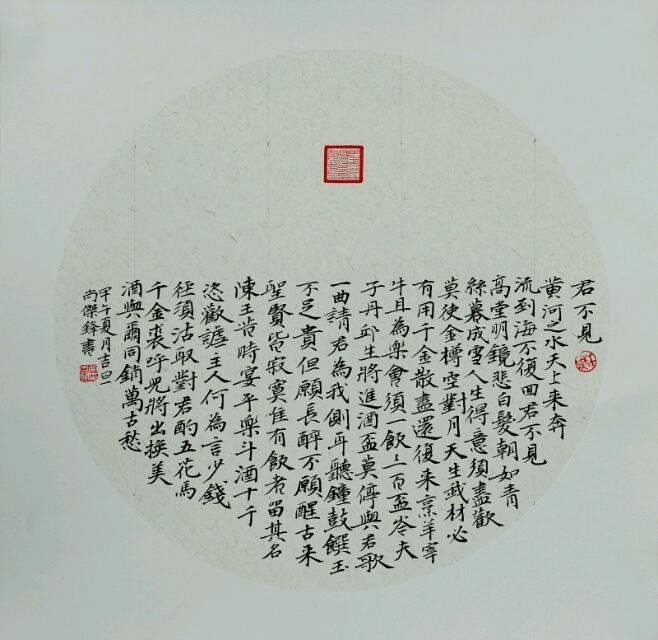 君不見
黃河之水天上来奔
流到海不復回君不見
高堂明鏡悲白髮朝如青
絲暮成雪人生得意須盡歡
莫使金樽空對月天生我材必
有用千金散盡還復来烹羊宰
牛且為樂會須一飲三百盃岑夫
子丹邱生將進酒盃莫停與君歌
一曲請君為我側耳聽鐘鼓饌玉
不足貴但願長醉不願醒古来
聖賢皆寂寞隹有飲者留其名
陳王昔時宴平樂斗酒十千
恣歡謔主人何為言少錢
徑須沽取對君酌五花馬
千金裘呼兒將出換美
酒與爾同銷萬古愁
甲午夏月吉日
尚傑鋒書